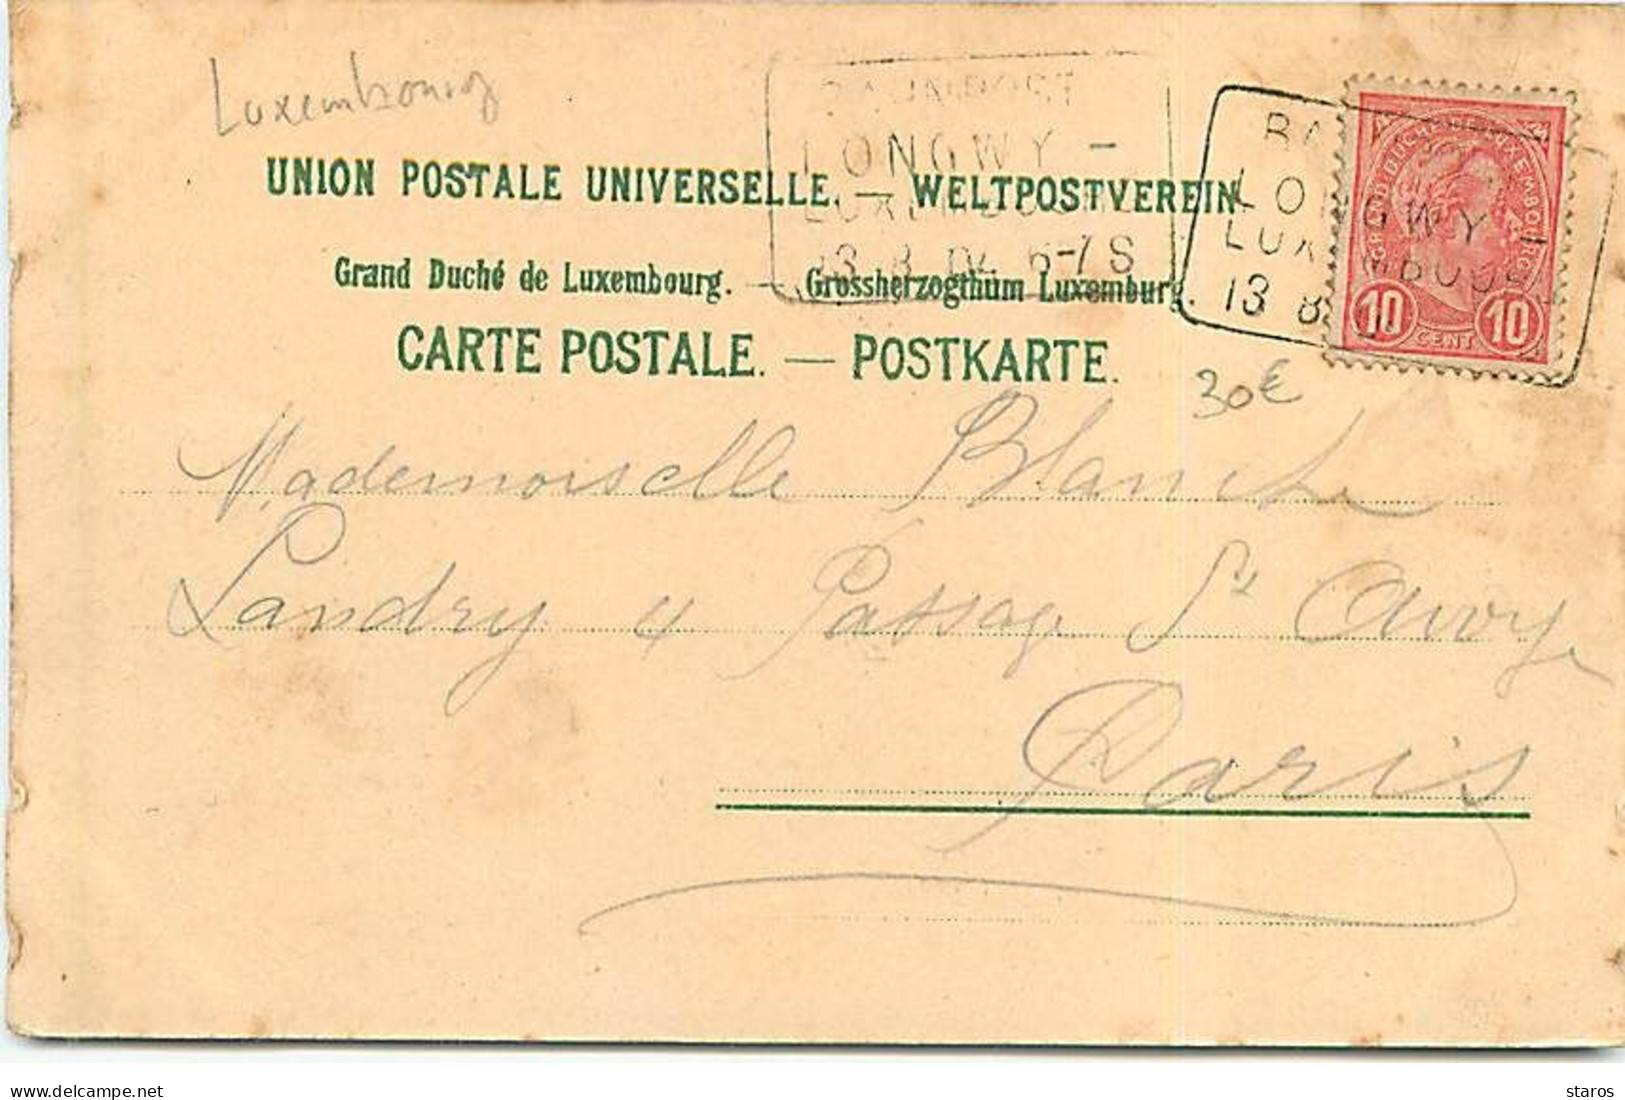 Luxembourg
UNION POSTALE UNIVERSELLE. — WELTPOSTVEREIN
Grand Duché de Luxembourg. — Grossherzogthum Luxemburg.
CARTE POSTALE. — POSTKARTE.
BAHNPOST
LONGWY -
LUXEMBOURG
13 8 6-7 S
LONGWY
LUXEMBOURG
13 8
GRAND DUCHÉ DE LUXEMBOURG
10 CENT 10
30€
Mademoiselle Blanche
Landry 4 Passage St Avoye
Paris
delcampe.net
staros